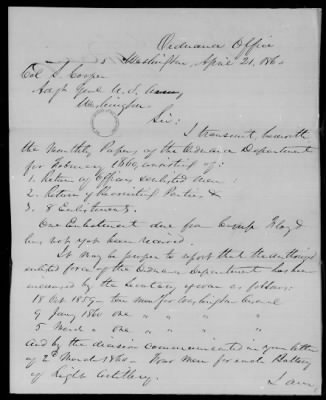 Ordnance Office
Washington, April 21, 1860
Col S. Cooper
Adjt Genl U.S. Army
Washington
Sir:
I transmit, herewith
the Monthly Papers of the Ordnance Department
for February 1860, consisting of:
1. Return of Officers & enlisted men
2. Return of Recruiting Parties &
3. 8 Enlistments.
One Enlistment due from Camp Floyd
has not yet been received.
It may be proper to report that the authorized
enlisted force of the Ordnance Department has been
increased by the Secretary of war as follows:
18 Oct. 1859 - ten men for Washington Arsenal
9 Jany 1860 one " " "
5 March " one " " "
And by the decision communicated in your letter
of 2d March 1860 - Four Men for each Battery
of Light Artillery.
I am,